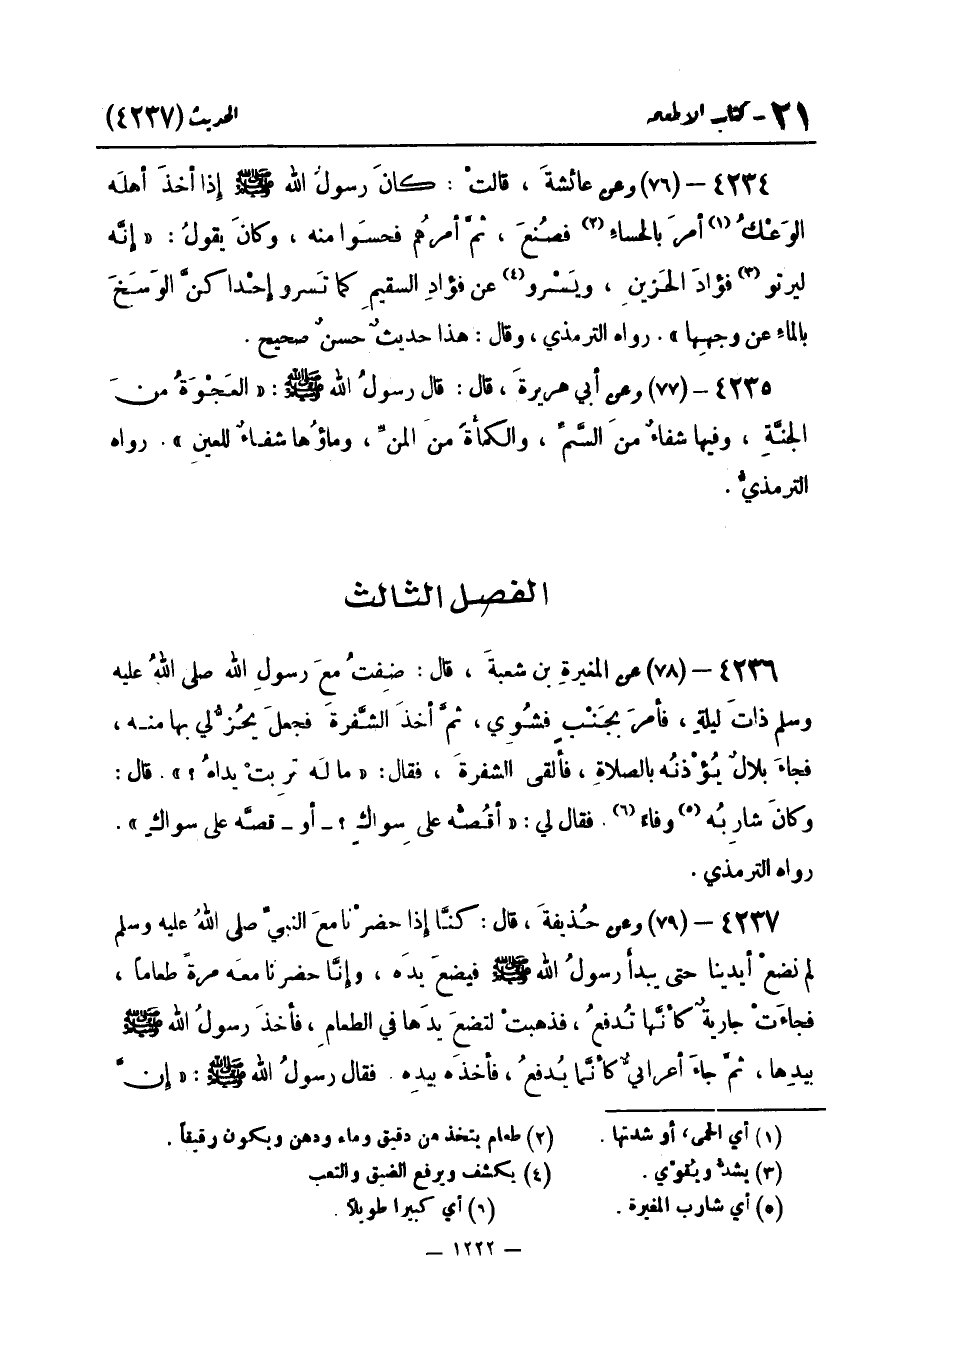 ٢١ - كتاب الأطعمة
الحديث (٤٢٣٧)
٤٢٣٤ – (٧٦) وعن عائشةَ ، قالتْ : كانَ رسولُ الله ﷺ إِذا أخذَ أهلَه
الوَعْكُ (١) أمرَ بالحساءِ (٢) فصُنعَ ، ثمَّ أمرهُم فحسَوا منه ، وكانَ يقولُ : « إنَّه
ليرتو (٣) فؤادَ الحَزينِ ، ويَسْرو (٤) عن فؤادِ السقيمِ كما تَسرو إِحْداكنَّ الوَسَخَ
بالماءِ عن وجهِها » . رواه الترمذي ، وقال : هذا حديثٌ حسنٌ صحيح .
٤٢٣٥ – (٧٧) وعن أبي هريرةَ ، قال : قال رسولُ الله ﷺ : « العَجْوَةُ منَ
الجنَّةِ ، وفيها شفاءٌ منَ السَّمِّ ، والكمأةُ منَ المنِّ ، وماؤُها شفاءٌ للعينِ » . رواه
الترمذيُّ .
الفصل الثالث
٤٢٣٦ – (٧٨) عن المغيرةِ بن شعبةَ ، قال : ضِفتُ معَ رسولِ الله صلى اللهُ عليه
وسلم ذاتَ ليلةٍ ، فأمرَ بجَنْبٍ فشُوِي ، ثمَّ أخذَ الشَّفرةَ فجعلَ يحُزُّ لي بها منه ،
فجاءَ بلالٌ يُؤْذنُه بالصلاةِ ، فألقى الشفرةَ ، فقال : « ما لَه تربتْ يداهُ ؟ » . قال :
وكانَ شاربُه (٥) وفاء (٦) . فقال لي : « أقُصُّه على سِواكٍ ؟ - أو - قصَّه على سواكٍ » .
رواه الترمذي .
٤٢٣٧ – (٧٩) وعن حُذيفةَ ، قال : كنَّا إِذا حضرْنا معَ النبيِّ صلى اللهُ عليه وسلم
لم نضعْ أيدينا حتى يبدأَ رسولُ الله ﷺ فيضعَ يدَه ، وإنَّا حضرنا معَه مرةً طعاماً ،
فجاءَتْ جاريةٌ كأنَّها تُدفعُ ، فذهبتْ لتضعَ يدَها في الطعامِ ، فأخذَ رسولُ الله ﷺ
بيدِها ، ثمَّ جاءَ أعرابيٌّ كأنَّما يُدفعُ ، فأخذَه بيدِه . فقال رسولُ الله ﷺ : « إِنَّ
(١) أي الحمى، أو شدتها .
(٢) طعام يتخذ من دقيق وماء ودهن ويكون رقيقاً .
(٣) يشدُّ ويُقوّي .
(٤) يكشف ويرفع الضيق والتعب
(٥) أي شارب المغيرة .
(٦) أي كبيرا طويلاً .
– ١٢٢٢ –